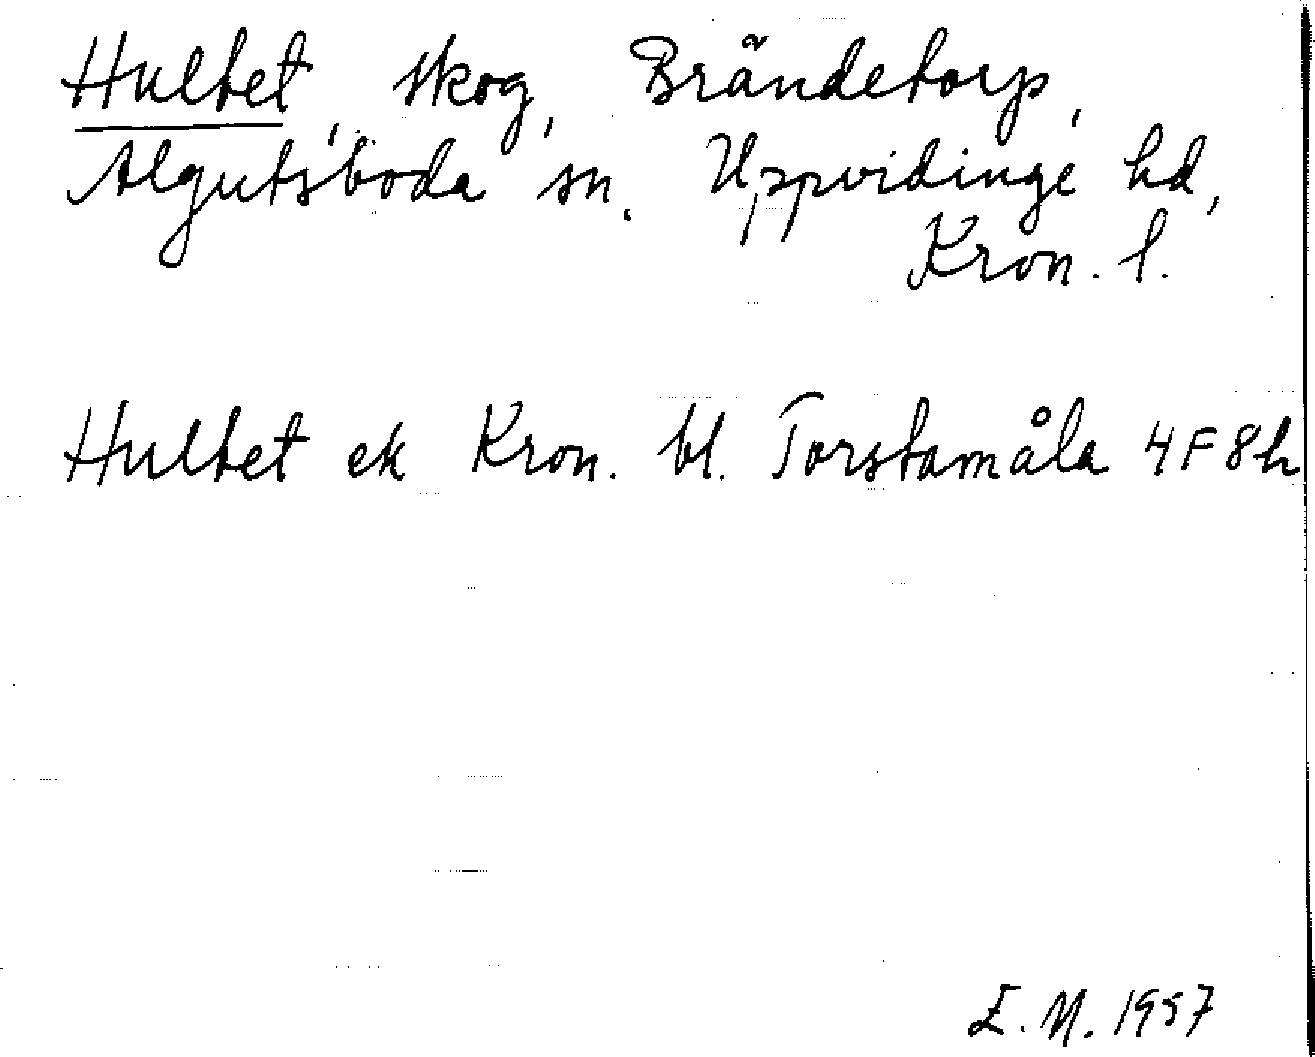 Hultet, skog, Brändetorp,
Algutsboda sn. Uppvidinge hd,
Kron. l.
Hultet ek Kron. bl. Torstamåla 4F8h
E. N. 1957